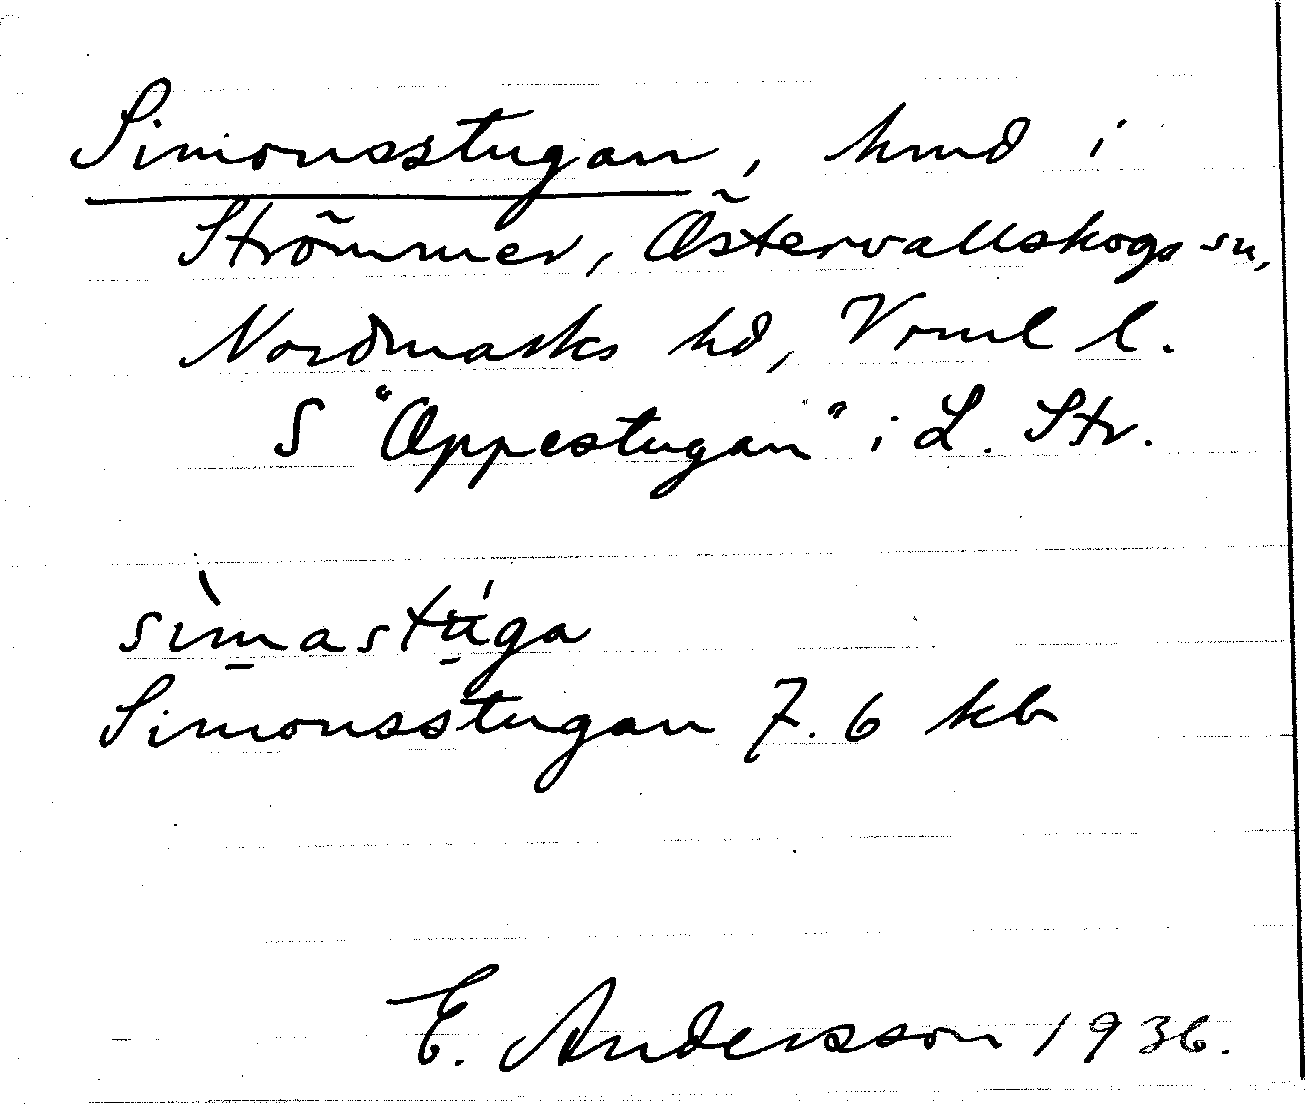 Simonsstugan, hmd i
Strömmer, Östervallskogs sn,
Nordmarks hd, Vrml l.
S "Oppestugan" i L. Str.
sìmastu̇́ga
Simonsstugan 7.6 kb
E. Andersson 1936.